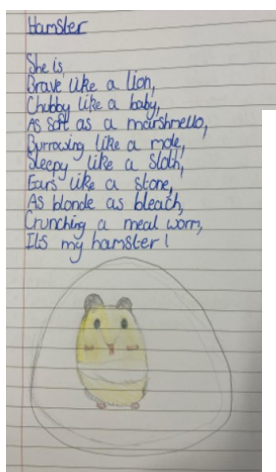 Hamster
She is
Brave like a lion,
Chubby like a baby,
As soft as a marshmello,
Burrowing like a mole,
Sleepy like a sloth,
Ears like a stone,
As blonde as bleach,
Crunching a meal worm,
Its my hamster!